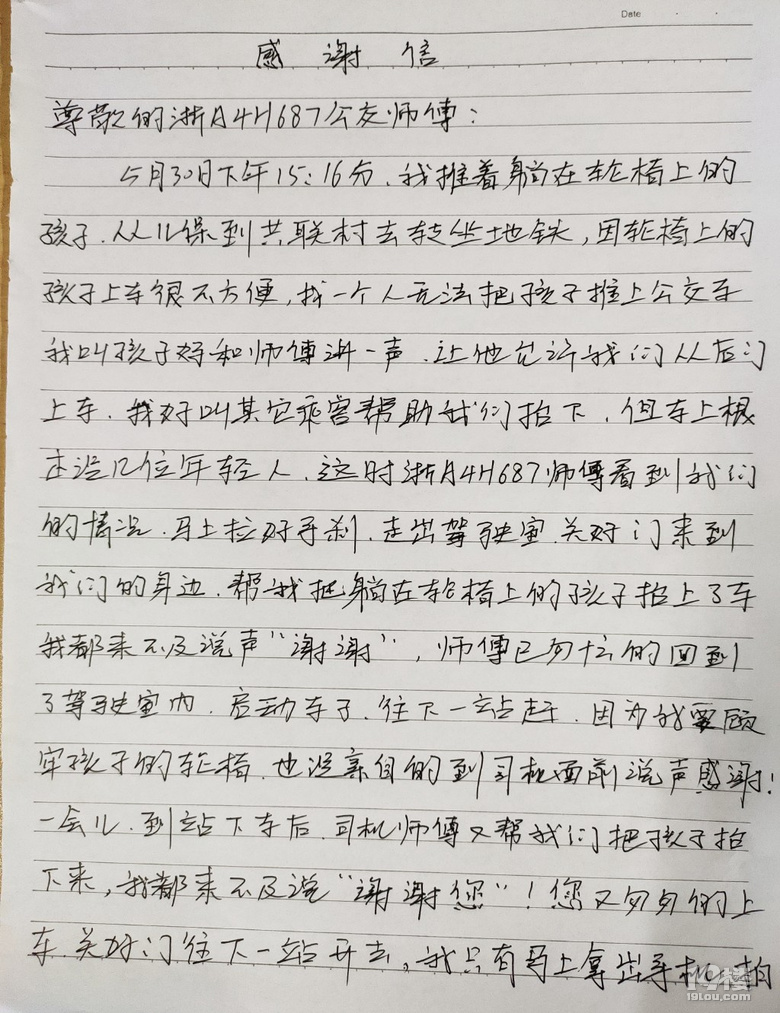 Date
感谢信
尊敬的浙A4H687公交师傅：
5月30日下午15：16分、我推着躺在轮椅上的
孩子、从儿保到共联村去转坐地铁，因轮椅上的
孩子上车很不方便，我一个人无法把孩子推上公交车
我叫孩子好和师傅讲一声、让他允许我们从后门
上车、我好叫其它乘客帮助我们抬下、但车上根
本没几位年轻人、这时浙A4H687师傅看到我们
的情况、马上拉好手刹、走出驾驶室、关好门来到
我们的身边、帮我把躺在轮椅上的孩子抬上了车
我都来不及说声“谢谢”，师傅已匆忙的回到
了驾驶室内、启动车子、往下一站赶、因为我要顾
牢孩子的轮椅、也没亲自的到司机面前说声感谢！
一会儿、到站下车后、司机师傅又帮我们把孩子抬
下来，我都来不及说“谢谢您”！您又匆匆的上
车、关好门往下一站开去，我只有马上拿出手机、拍
19楼
19lou.com